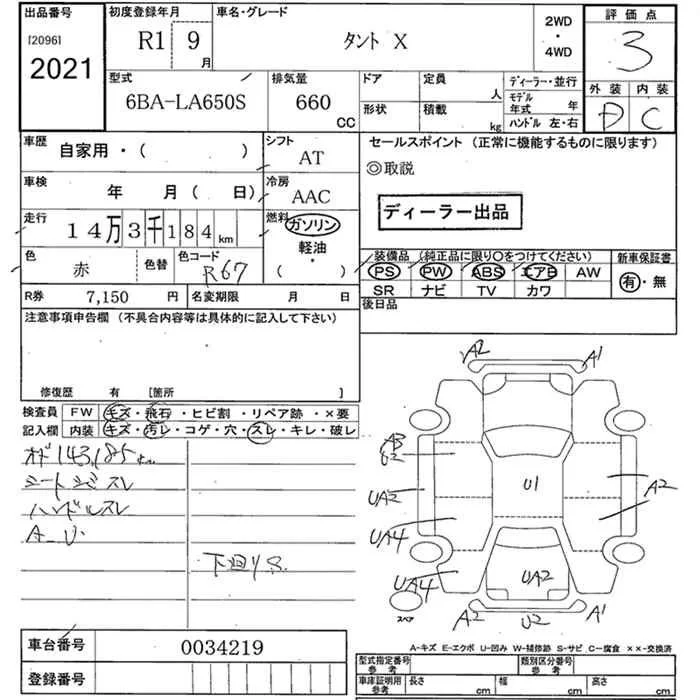 出品番号 初度登録年月 車名・グレード 2WD・4WD 評価点
[2096] R1 9月 タント X 3
2021 外装 内装
型式 排気量 ドア 定員 人 ディーラー・並行
6BA-LA650S 660 CC 形状 積載 kg モデル年式 年 D C
ハンドル 左・右
車歴 自家用・( ) シフト AT セールスポイント (正常に機能するものに限ります)
◎取説
車検 年 月 ( 日) 冷房 AAC
ディーラー出品
走行 14万3千184km 燃料 ガソリン
軽油
・
( )
色 赤 色替 色コード R67
装備品 (純正品に限り○をつけてください) 新車保証書
PS PW ABS エアB AW 有・無
SR ナビ TV カワ
R券 7,150 円 名変期限 月 日 後日品
注意事項申告欄 (不具合内容等は具体的に記入して下さい)
修復歴 有 [箇所 ]
検査員 FW キズ・飛石・ヒビ割・リペア跡・×要
記入欄 内装 キズ・汚レ・コゲ・穴・スレ・キレ・破レ
オド143,185km
シートシミスレ
ハンドルスレ
A_U
下廻りS
A2 A1
A3
U2
U1
UA2 A2
UA4
UA4 UA2
スペア
A2 U2 A1
A-キズ E-エクボ U-凹み W-補修跡 S-サビ C-腐食 ××-交換済
車台番号 0034219
登録番号
型式指定番号 参考 類別区分番号 参考
車庫証明用 参考 長さ cm 幅 cm 高さ cm